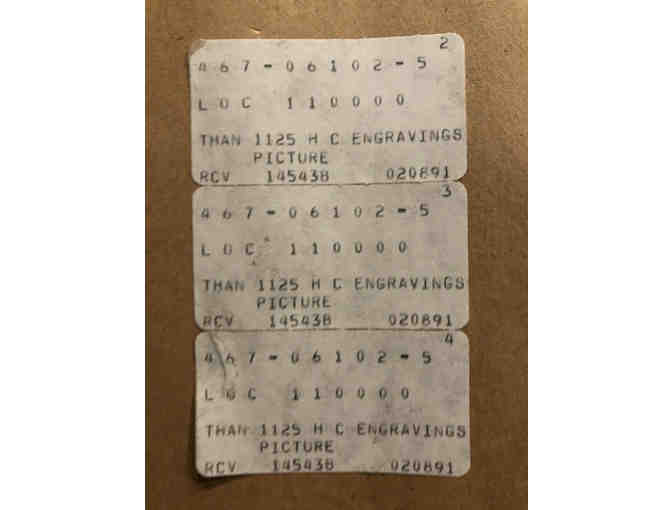 2
467-06102-5
LOC 110000
THAN 1125 H C ENGRAVINGS
PICTURE
RCV 145438 020891
3
467-06102-5
LOC 110000
THAN 1125 H C ENGRAVINGS
PICTURE
RCV 145438 020891
4
467-06102-5
LOC 110000
THAN 1125 H C ENGRAVINGS
PICTURE
RCV 145438 020891